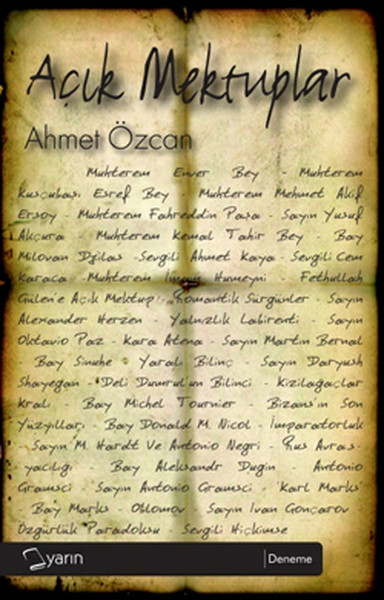 Açık Mektuplar
Ahmet Özcan
Muhterem Enver Bey - Muhterem
Kuşçubaşı Eşref Bey - Muhterem Mehmet Akif
Ersoy - Muhterem Fahreddin Paşa - Sayın Yusuf
Akçura Muhterem Kemal Tahir Bey - Bay
Milovan Djilas -Sevgili Ahmet Kaya - Sevgili Cem
Karaca -Muhterem İmam Humeyni - Fethullah
Gülen'e Açık Mektup Romantik Sürgünler - Sayın
Alexander Herzen - Yalnızlık Labirenti Sayın
Oktavio Paz - Kara Atena - Sayın Martin Bernal
Bay Sinuhe - Yaralı Bilinç - Sayın Daryush
Shayegan - Deli Dumrul'un Bilinci - Kızılağaçlar
Kralı Bay Michel Tournier Bizans'ın Son
Yüzyılları - Bay Donald M. Nicol - İmparatorluk
- Sayın M. Hardt Ve Antonio Negri - Rus Avras-
yacılığı Bay Aleksandr Dugin - Antonio
Gramsci Sayın Antonio Gramsci - 'Karl Marks'
Bay Marks - Oblomov - Sayın Ivan Gonçarov
Özgürlük Paradoksu - Sevgili Hiçkimse
yarın
Deneme